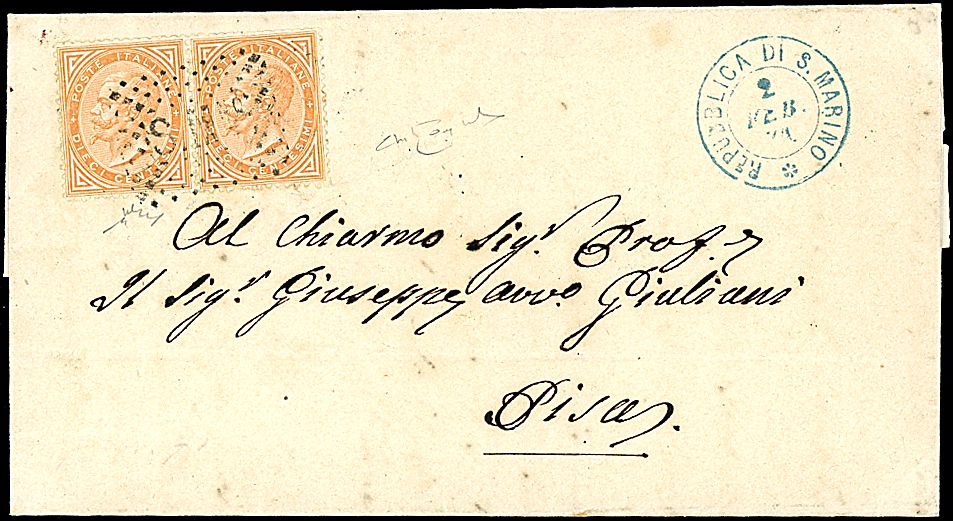 POSTE ITALIANE
DIECI CENTESIMI
POSTE ITALIANE
DIECI CENTESIMI
REPUBBLICA DI S. MARINO
2
FEB.
Al Chiarmo Sigr. Prof.r
Il Sigr. Giuseppe avvo. Giuliani
Pisa.